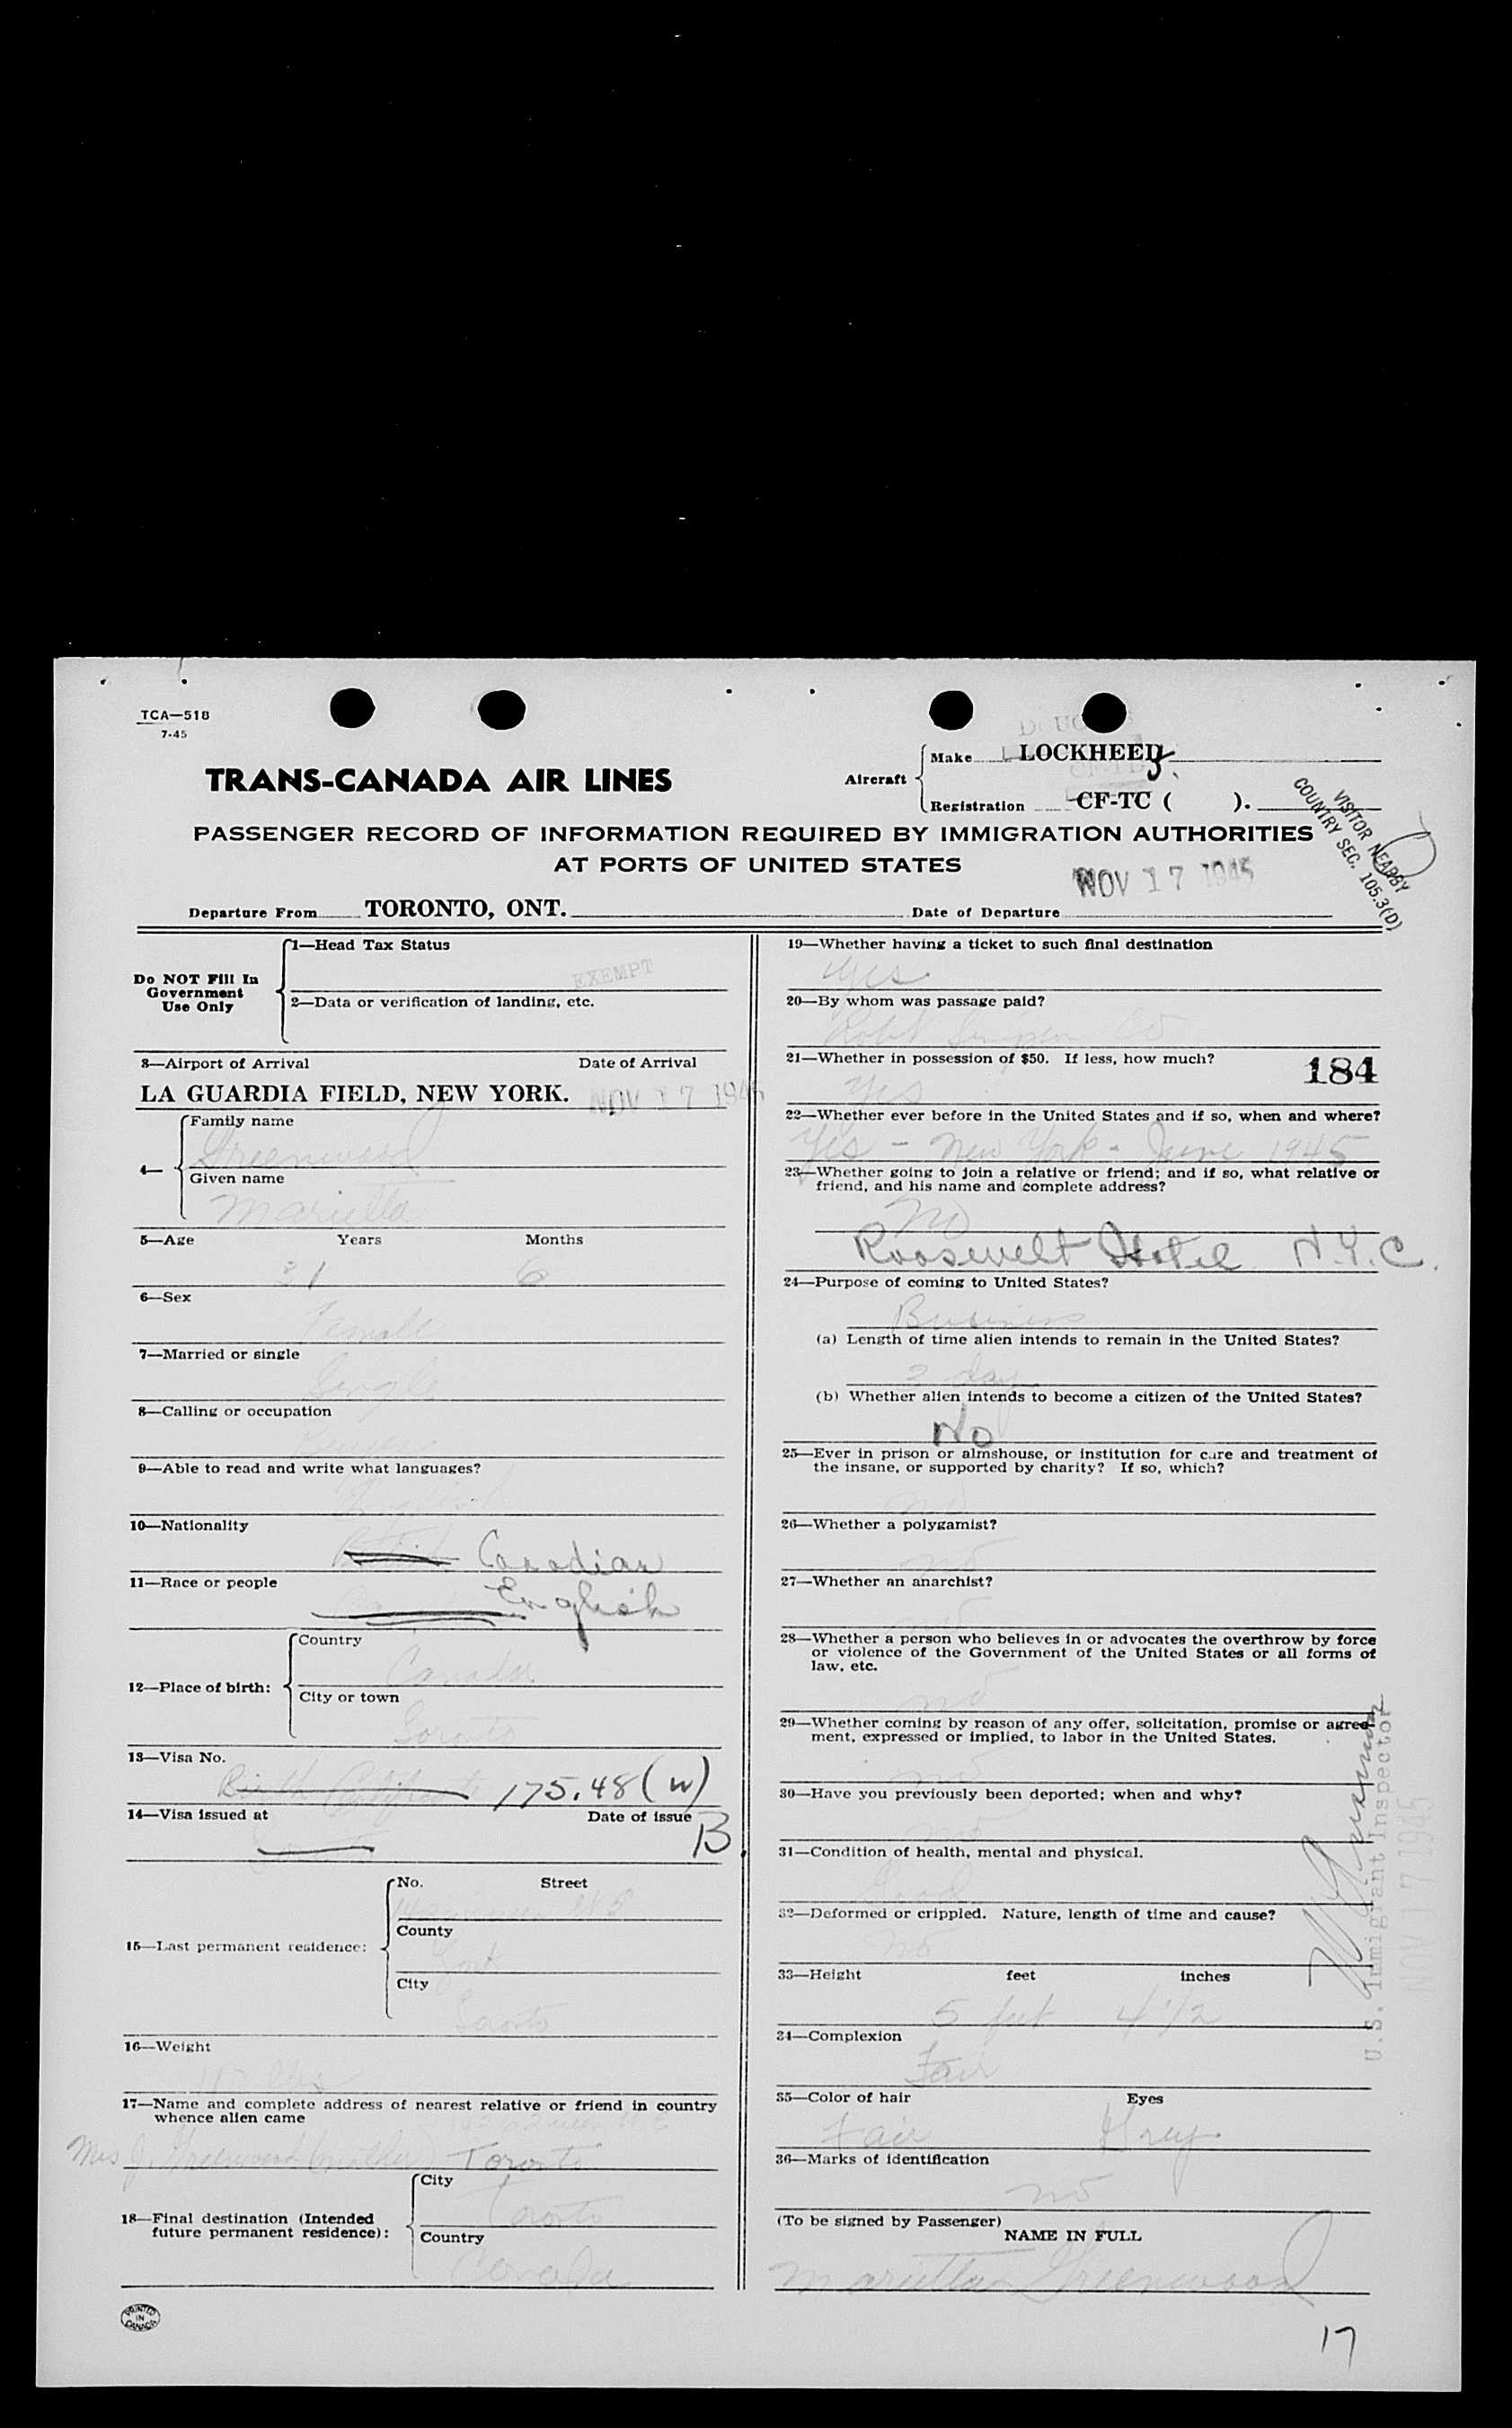 TCA—518
7-45
TRANS-CANADA AIR LINES
Aircraft
Make LOCKHEED
Registration CF-TC ( ).
VISITOR NEARBY
COUNTRY SEC. 105.3(D)
PASSENGER RECORD OF INFORMATION REQUIRED BY IMMIGRATION AUTHORITIES
AT PORTS OF UNITED STATES
NOV 17 1945
Departure From TORONTO, ONT. Date of Departure
Do NOT Fill In
Government
Use Only
1—Head Tax Status
EXEMPT
2—Data or verification of landing, etc.
3—Airport of Arrival Date of Arrival
LA GUARDIA FIELD, NEW YORK. NOV 17 1945
4—
Family name
Greenwood
Given name
Marietta
5—Age Years Months
31 6
6—Sex
Female
7—Married or single
Single
8—Calling or occupation
9—Able to read and write what languages?
English
10—Nationality
British Canadian
11—Race or people
English
12—Place of birth:
Country
Canada
City or town
Toronto
13—Visa No.
Birth Certificate 175.48 (w)
14—Visa issued at Date of issue
B
15—Last permanent residence:
No. Street
County
City
Toronto
16—Weight
17—Name and complete address of nearest relative or friend in country
whence alien came
Mrs J. Greenwood (mother) Toronto
18—Final destination (Intended
future permanent residence):
City
Toronto
Country
Canada
PRINTED
IN
CANADA
19—Whether having a ticket to such final destination
Yes
20—By whom was passage paid?
Robt Simpson Co
21—Whether in possession of $50. If less, how much?
184
Yes
22—Whether ever before in the United States and if so, when and where?
Yes - New York - June 1945
23—Whether going to join a relative or friend; and if so, what relative or
friend, and his name and complete address?
No
Roosevelt Hotel N.Y.C.
24—Purpose of coming to United States?
Business
(a) Length of time alien intends to remain in the United States?
(b) Whether alien intends to become a citizen of the United States?
No
25—Ever in prison or almshouse, or institution for care and treatment of
the insane, or supported by charity? If so, which?
no
26—Whether a polygamist?
no
27—Whether an anarchist?
no
28—Whether a person who believes in or advocates the overthrow by force
or violence of the Government of the United States or all forms of
law, etc.
no
29—Whether coming by reason of any offer, solicitation, promise or agree-
ment, expressed or implied, to labor in the United States.
no
30—Have you previously been deported; when and why?
no
31—Condition of health, mental and physical.
Good
32—Deformed or crippled. Nature, length of time and cause?
no
33—Height feet inches
5 feet 4 1/2
34—Complexion
Fair
35—Color of hair Eyes
Fair Grey
36—Marks of identification
no
(To be signed by Passenger)
NAME IN FULL
Marietta Greenwood
U.S. Immigrant Inspector
NOV 17 1945
17